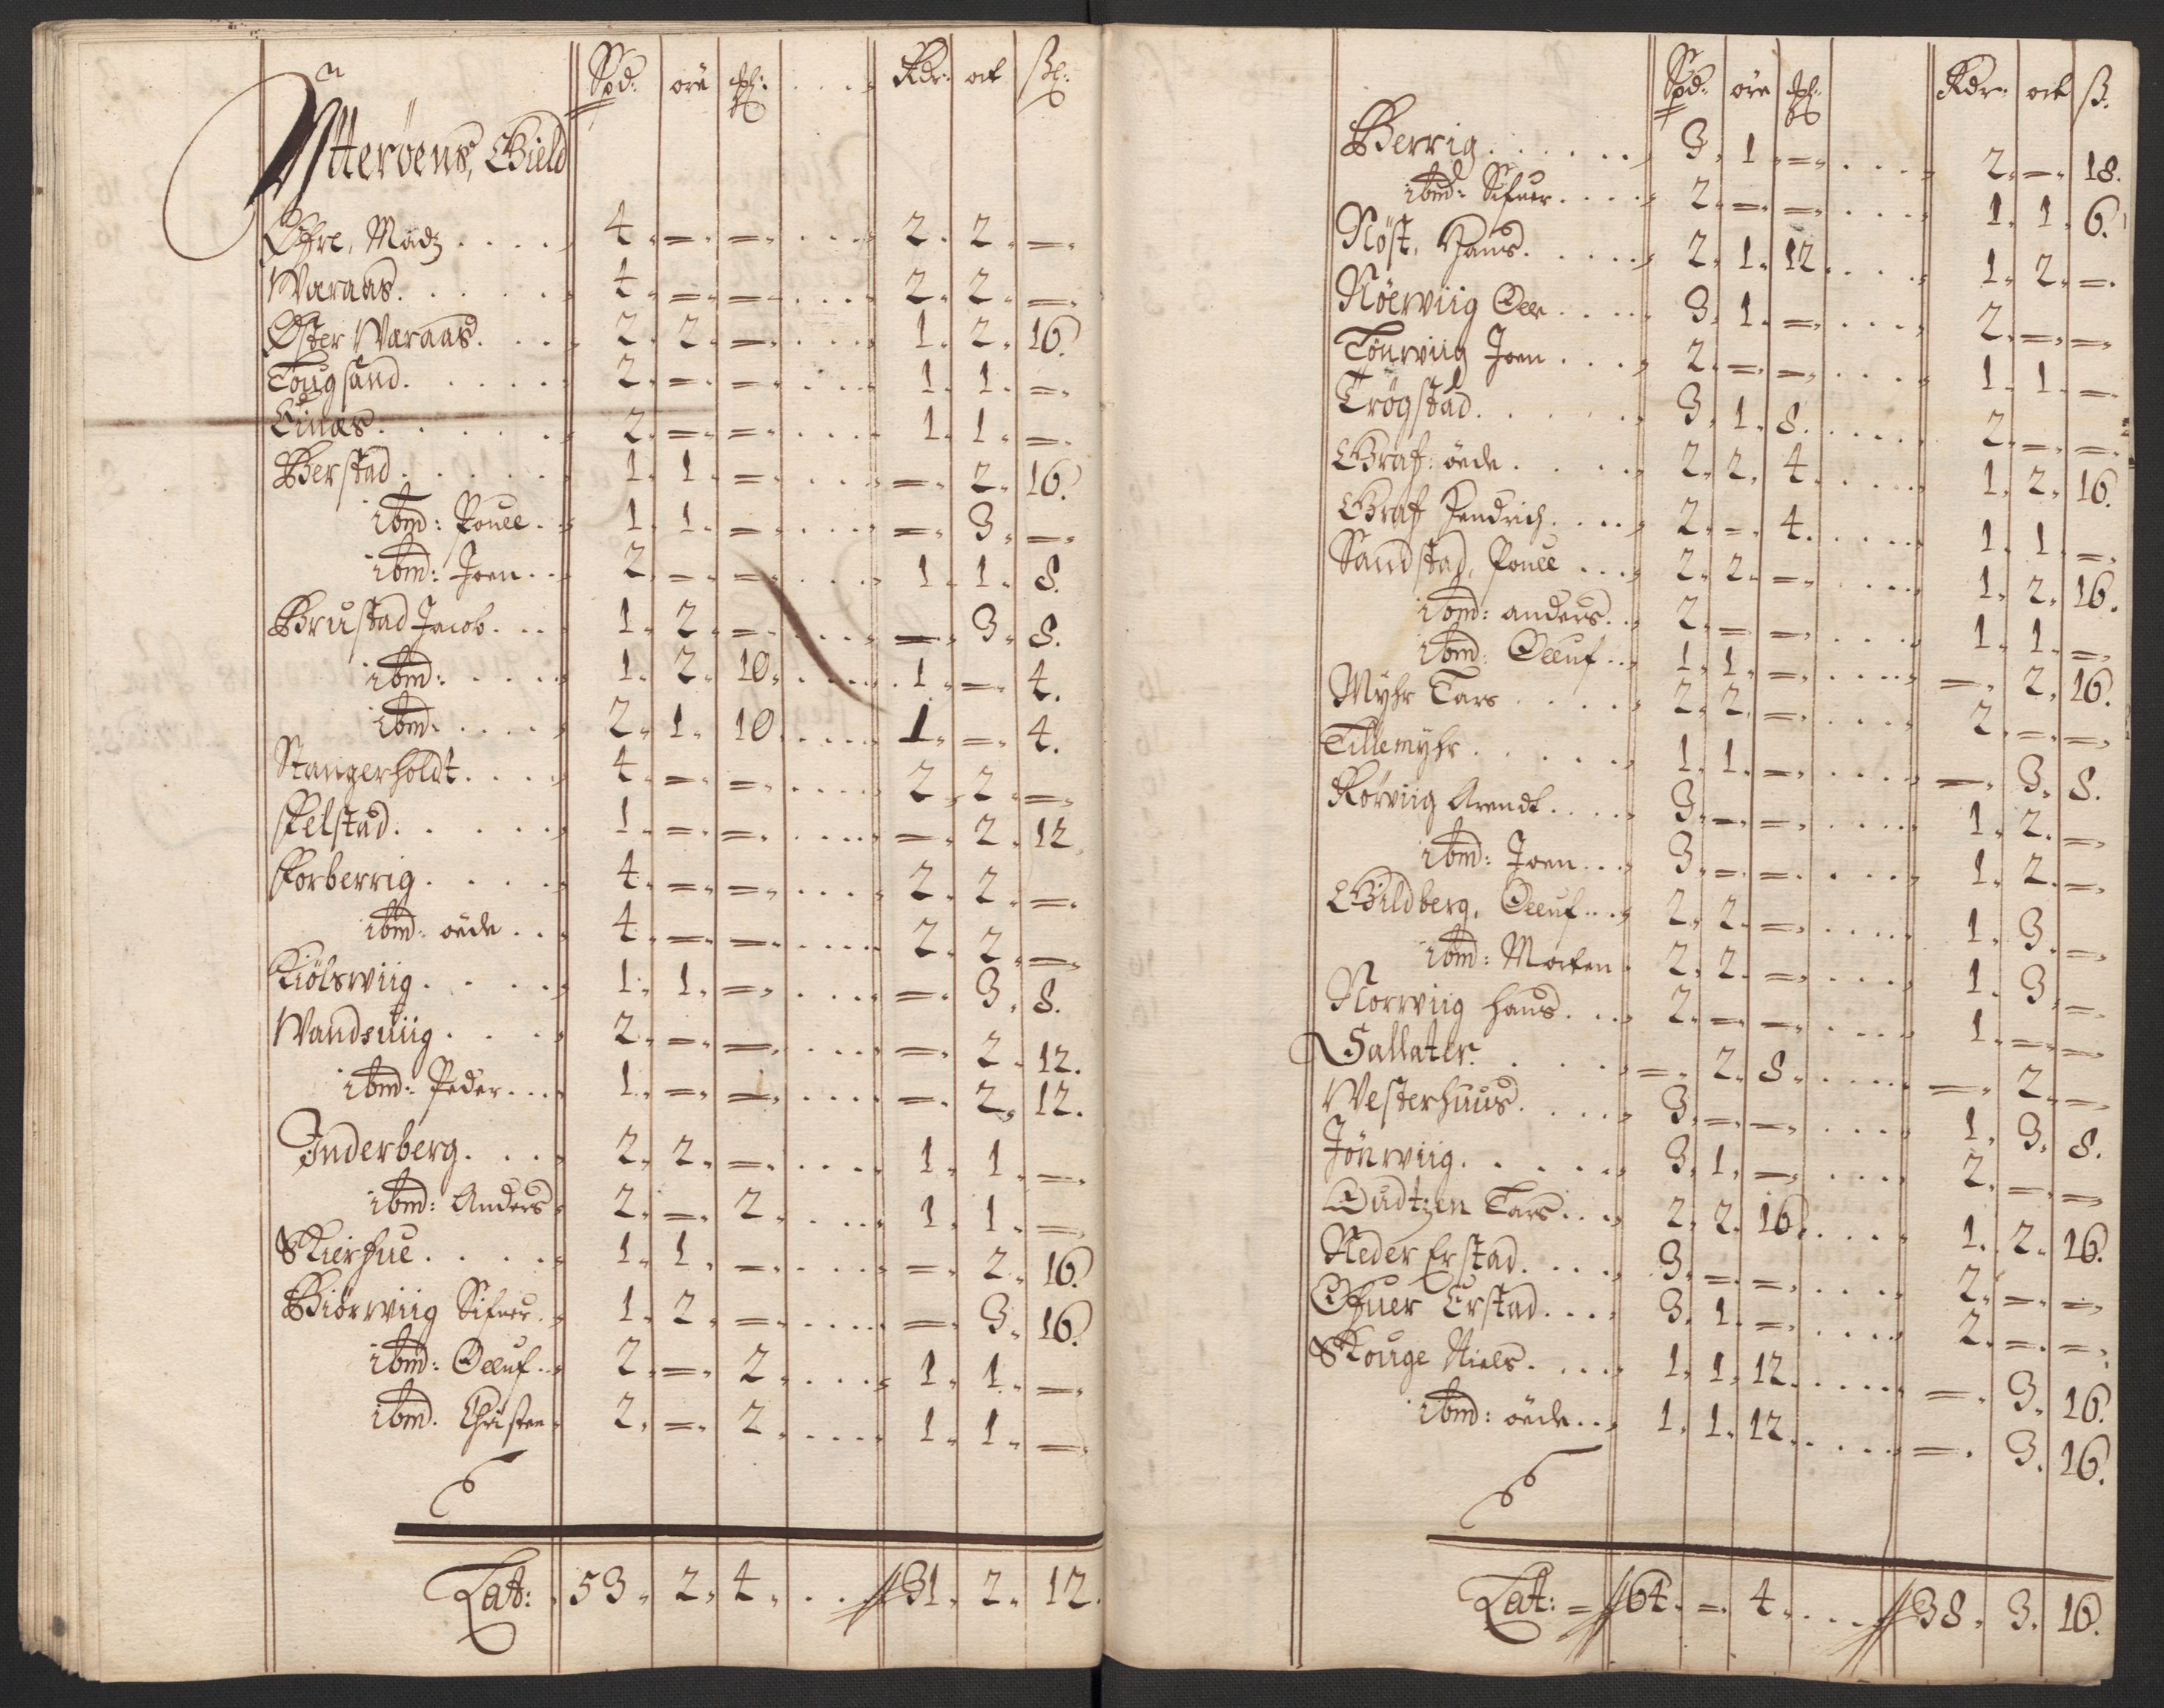 Spd: öre ₰: Rdr: ort ßl:
Ytterøens, Gield
Øfre, Madz .... 4. =. =. .... 2. 2. =.
Waraas. .... 4. =. =. .... 2. 2. =.
Øster Waraas. ... 2. 2. =. .... 1. 2. 16.
Tougsand. .... 2. =. =. .... 1. 1. =.
Einæs. .... 2. =. =. .... 1. 1. =.
Berstad. .... 1. 1. =. .... =. 2. 16.
ibm: Pouel. .. 1. 1. =. .... =. 3. =.
ibm: Joen. .. 2. =. =. .... 1. 1. 8.
Brustad Jacob. ... 1. 2. =. .... =. 3. 8.
ibm: .... 1. 2. 10. .... 1. =. 4.
ibm: .... 2. 1. 10. .... 1. =. 4.
Stangerholdt. ... 4. =. =. .... 2. 2. =.
Felstad. .... 1. =. =. .... =. 2. 12.
Forberrig. .... 4. =. =. .... 2. 2. =.
ibm: øede. .. 4. =. =. .... 2. 2. =.
Kiölswiig. .... 1. 1. =. .... =. 3. 8.
Wandsuiig. ... 2. =. =. .... =. 2. 12.
ibm: Peder. ... 1. =. =. .... =. 2. 12.
Inderberg. ... 2. 2. =. .... 1. 1. =.
ibm: Anders. 2. =. 2. .... 1. 1. =.
Skierhue. .... 1. 1. =. .... =. 2. 16.
Biörwiig Sifuer. . 1. 2. =. .... =. 3. 16.
ibm: Oeluf. .. 2. =. 2. .... 1. 1. =.
ibm. Christen. 2. =. 2. .... 1. 1. =.
Lat: . 53. 2. 4. ... 31. 2. 12.
Spd: öre ₰: Rdr: ort ß.
Berrig. .... 3. 1. =. .... 2. =. 18.
ibmd: Sifuer. ... 2. =. =. .... 1. 1. 6.
Nöst, Hans. .... 2. 1. 12. .... 1. 2. =.
Nöerwiig Ole .... 3. 1. =. .... 2. =. =.
Tönwiig Joen ... 2. =. =. .... 1. 1. =.
Trögstad. .... 3. 1. 8. .... 2. =. =.
Graf: öede. ... 2. 2. 4. .... 1. 2. 16.
Graf Hendrich. ... 2. =. 4. .... 1. 1. =.
Sandstad, Pouel ... 2. 2. =. .... 1. 2. 16.
ibm: anders. .. 2. =. =. .... 1. 1. =.
ibm: Oeluf. .. 1. 1. =. .... =. 2. 16.
Myhr Lars .... 2. 2. =. .... 2. =. =.
Tillemyhr. .... 1. 1. =. .... =. 3. 8.
Rörviig Arendt. ... 3. =. =. .... 1. 2. =.
ibm: Joen. .. 3. =. =. .... 1. 2. =.
Gildberg, Oeluf. .. 2. 2. =. .... 1. 3. =.
ibm: Morten. 2. 2. =. .... 1. 3. =.
Norwiig Hans. ... 2. =. =. .... 1. =. =.
Sallater. .... =. 2. 8. .... =. 2. =.
Westerhuus. .... 3. =. =. .... 1. 3. 8.
Jönwiig. .... 3. 1. =. .... 2. =. =.
Qudtzen Lars. ... 2. 2. 16. .... 1. 2. 16.
Neder Erstad. ... 3. =. =. .... 2. =. =.
Öfuer Erstad. ... 3. 1. =. .... 2. =. =.
Skouge Niels. ... 1. 1. 12. .... =. 3. 16.
ibm: öede. .. 1. 1. 12. .... =. 3. 16.
Lat: = 64. =. 4. .... 38. 3. 16.